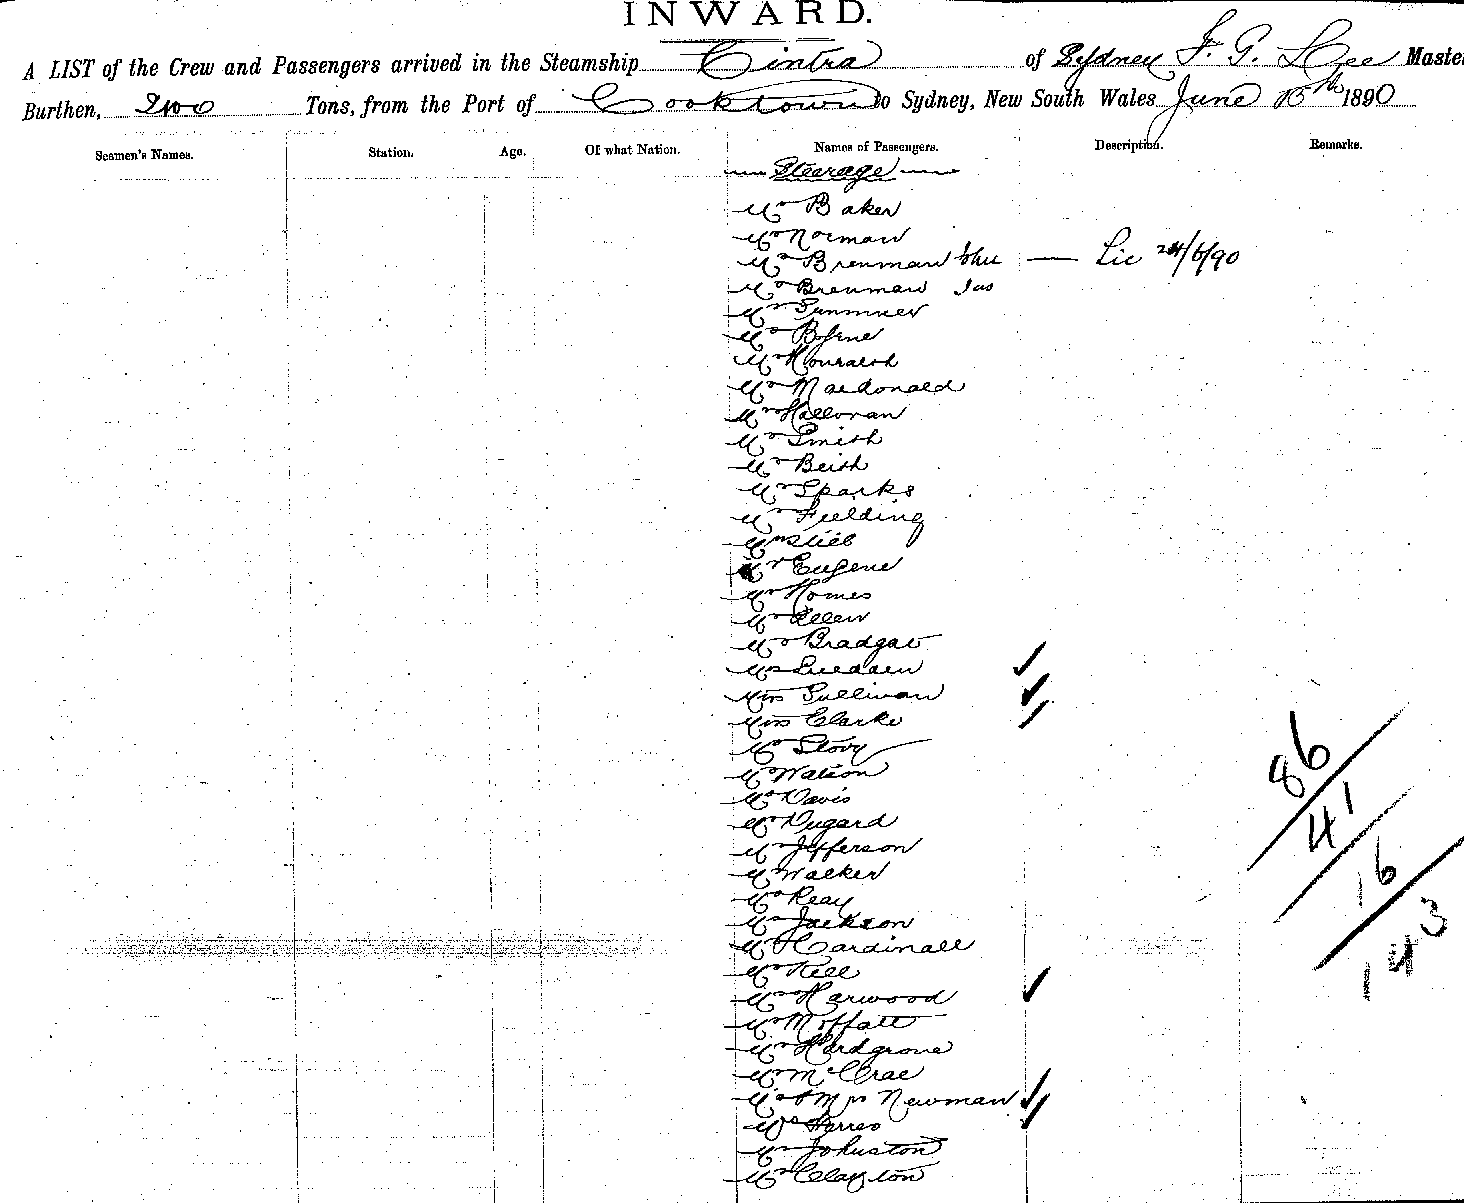 INWARD.
A LIST of the Crew and Passengers arrived in the Steamship Cintra of Sydney F. G. Lee Maste
Burthen, Tons, from the Port of Cooktown to Sydney, New South Wales June 1890
Seamen's Names. Station. Age. Of what Nation. Names of Passengers. Description. Remarks.
Steerage
Mr Baker
Mr Norman
Mr Brennan — Lic 24/6/90
Mr Brennan Jas
Mr
Mr Byrne
Mr
Mr Macdonald
Mr Halloran
Mr Smith
Mr Beith
Mr Sparks
Mr Fielding
Mr
Mr Eugene
Mr Homes
Mr Allen
Mr
Mr
Mrs Sullivan
Mrs Clarke
Mr Story
Mr Watson
Mr Davis
Mr Dugard
Mr Jefferson
Mr Walker
Mr Reay
Mr Jackson
Mr Cardinall
Mr
Mr Harwood
Mr Moffatt
Mr Hardgrove
Mr McCrae
Mr & Mrs Newman
Mr
Mr Johnston
Mr Clayton
86
41
16
143